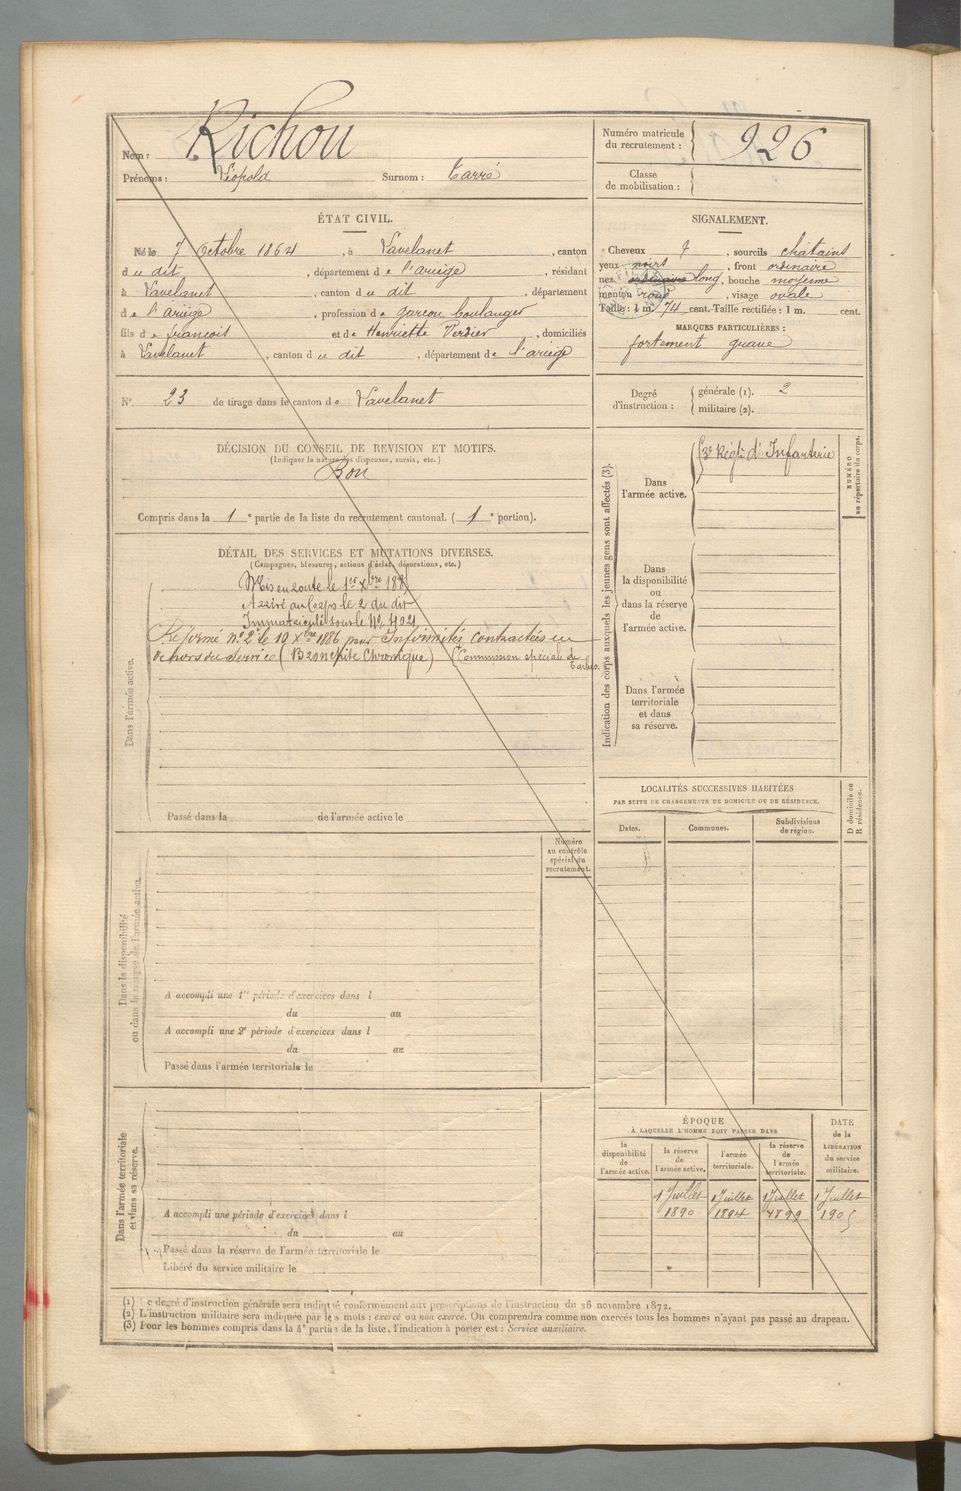 Nom : Richou
Prénoms : Léopold Surnom : Tarré
Numéro matricule
du recrutement : 926
Classe
de mobilisation :
ÉTAT CIVIL.
Né le 7 Octobre 1864, à Lavelanet, canton
du dit, département de l'ariège, résidant
à Lavelanet, canton du dit, département
de l'ariège, profession de garcon boulanger
fils de francois et de Henriette Verdier, domiciliés
à Lavelanet, canton du dit, département de l'ariège
N° 23 de tirage dans le canton de Lavelanet
SIGNALEMENT.
Cheveux , sourcils chatains
yeux noirs, front ordinaire
nez ordinaire long, bouche moyenne
menton rond, visage ovale
Taille : 1 m. 74 cent. Taille rectifiée : 1 m. cent.
MARQUES PARTICULIÈRES :
fortement gravé
Degré
d'instruction :
générale (1). 2
militaire (2).
DÉCISION DU CONSEIL DE REVISION ET MOTIFS.
(Indiquer la nature des dispenses, sursis, etc.)
Bon
Compris dans la 1e partie de la liste du recrutement cantonal. ( 1e portion).
DÉTAIL DES SERVICES ET MUTATIONS DIVERSES.
(Campagnes, blessures, actions d'éclat, décorations, etc.)
Mis en route le 1er Xbre 188
Arrivé au Corps le 2 du dit
Immatriculé sous le N° 4021
Réformé n° 2 le 10 Xbre 1886 pour Infirmités contractées en
dehors du service (Bronchite Chronique) (Commission spéciale de
Tarbes.
Dans l'armée active.
Passé dans la de l'armée active le
Indication des corps auxquels les jeunes gens sont affectés (3).
Dans
l'armée active.
Régt d'Infanterie
NUMÉRO
au répertoire du corps.
Dans
la disponibilité
ou
dans la réserve
de
l'armée active.
Dans l'armée
territoriale
et dans
sa réserve.
LOCALITÉS SUCCESSIVES HABITÉES
PAR SUITE DE CHANGEMENTS DE DOMICILE OU DE RÉSIDENCE.
Dates.
Communes.
Subdivisions
de région.
D domicile ou
R résidence.
Numéro
au contrôle
spécial du
recrutement.
Dans la disponibilité
ou dans la réserve de l'armée active.
A accompli une 1re période d'exercices dans l
du au
A accompli une 2e période d'exercices dans l
du au
Passé dans l'armée territoriale le
Dans l'armée territoriale
et dans sa réserve.
A accompli une période d'exercices dans l
du au
Passé dans la réserve de l'armée territoriale le
Libéré du service militaire le
ÉPOQUE
À LAQUELLE L'HOMME DOIT PASSER DANS
la
disponibilité
de
l'armée active.
la réserve
de
l'armée active.
l'armée
territoriale.
la réserve
de
l'armée
territoriale.
DATE
de la
LIBÉRATION
du service
militaire.
1 Juillet 1 Juillet 1 Juillet 1 Juillet
1890 1894 1899 1905
(1) Le degré d'instruction générale sera indiqué conformément aux prescriptions de l'instruction du 26 novembre 1872.
(2) L'instruction militaire sera indiquée par les mots : exercé ou non exercé. On comprendra comme non exercés tous les hommes n'ayant pas passé au drapeau.
(3) Pour les hommes compris dans la 4e partie de la liste, l'indication à porter est : Service auxiliaire.